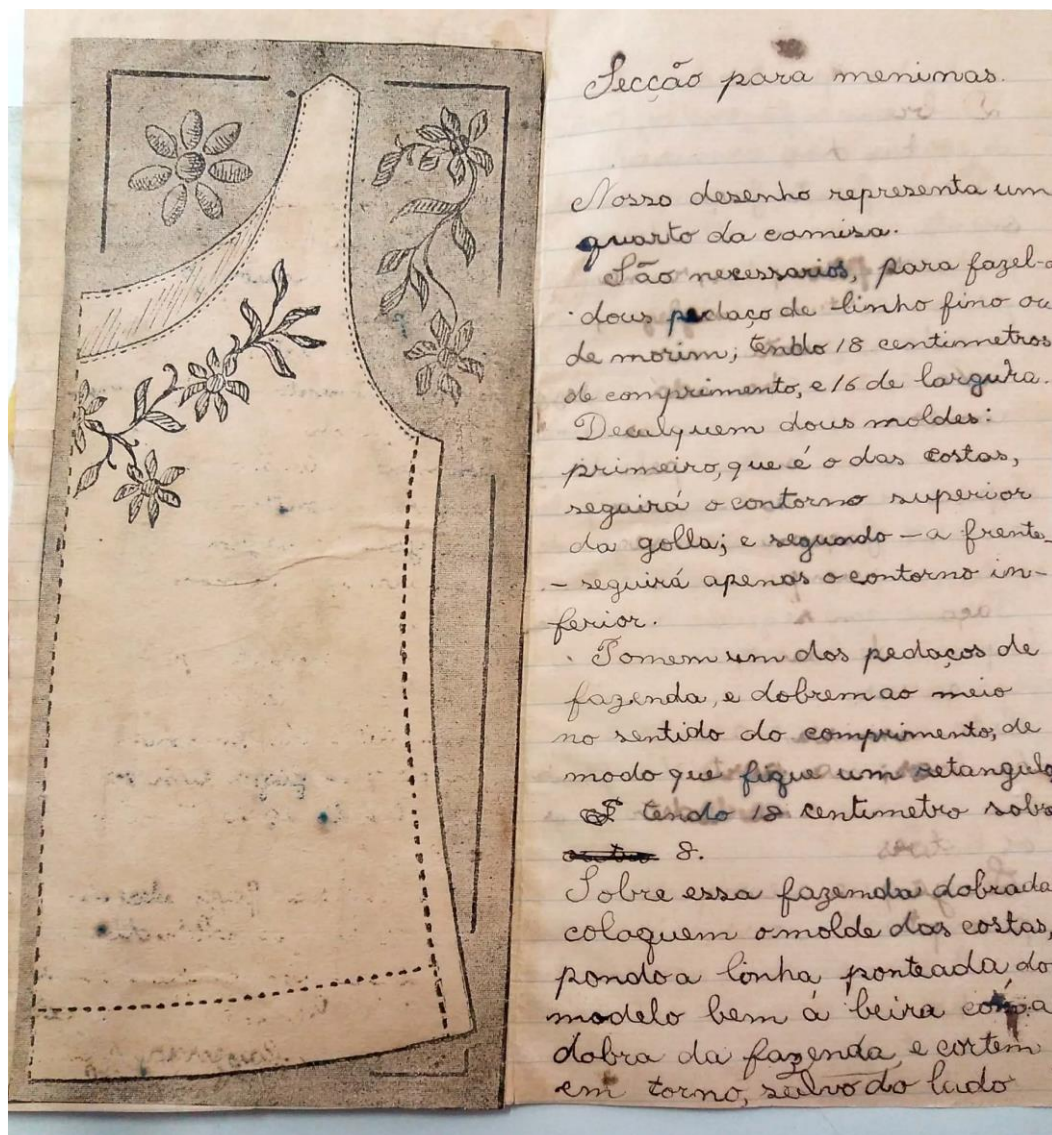 Secção para meninas.
Nosso desenho representa um
quarto da camisa.
São necessarios, para fazel-o
dous pedaço de linho fino ou
de morim; tendo 18 centimetros
de comprimento, e 16 de largura.
Decalquem dous moldes:
primeiro, que é o das costas,
seguirá o contorno superior
da golla; e segundo – a frente –
– seguirá apenas o contorno in-
ferior.
Tomem um dos pedaços de
fazenda, e dobrem ao meio
no sentido do comprimento, de
modo que fique um retangulo
tendo 18 centimetro sobre
8.
Sobre essa fazenda dobrada
coloquem o molde das costas,
pondo a linha ponteada do
modelo bem á beira com a
dobra da fazenda, e cortem
em torno, salvo do lado